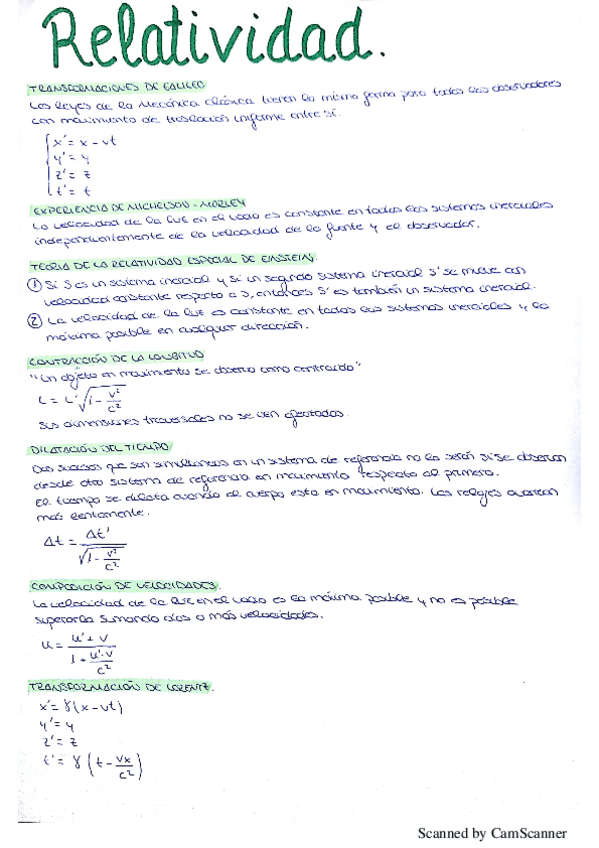 Relatividad.
TRANSFORMACIONES DE GALILEO
Las leyes de la Mecánica Clásica tienen la misma forma para todos los observadores
con movimiento de traslación uniforme entre sí.
x' = x - vt
y' = y
z' = z
t' = t
EXPERIENCIA DE MICHELSON - MORLEY
La velocidad de la luz en el vacío es constante en todos los sistemas inerciales
independientemente de la velocidad de la fuente y el observador.
TEORÍA DE LA RELATIVIDAD ESPECIAL DE EINSTEIN.
① Si S es un sistema inercial y si un segundo sistema inercial S' se mueve con
velocidad constante respecto a S, entonces S' es también un sistema inercial.
② La velocidad de la luz es constante en todos los sistemas inerciales y la
máxima posible en cualquier dirección.
CONTRACCIÓN DE LA LONGITUD
"Un objeto en movimiento se observa como contraído"
L = L' √(1 - v²/c²)
Sus dimensiones trasversales no se ven afectadas.
DILATACIÓN DEL TIEMPO
Dos sucesos que son simultáneos en un sistema de referencia no lo serán si se observan
desde otro sistema de referencia en movimiento respecto al primero.
El tiempo se dilata cuando el cuerpo esta en movimiento. Los relojes avanzan
más lentamente.
Δt = Δt' / √(1 - v²/c²)
COMPOSICIÓN DE VELOCIDADES.
La velocidad de la luz en el vacío es la máxima posible y no es posible
superarla sumando dos o más velocidades.
u = (u' + v) / (1 + u'·v/c²)
TRANSFORMACIÓN DE LORENTZ.
x' = γ(x - vt)
y' = y
z' = z
t' = γ(t - vx/c²)
Scanned by CamScanner